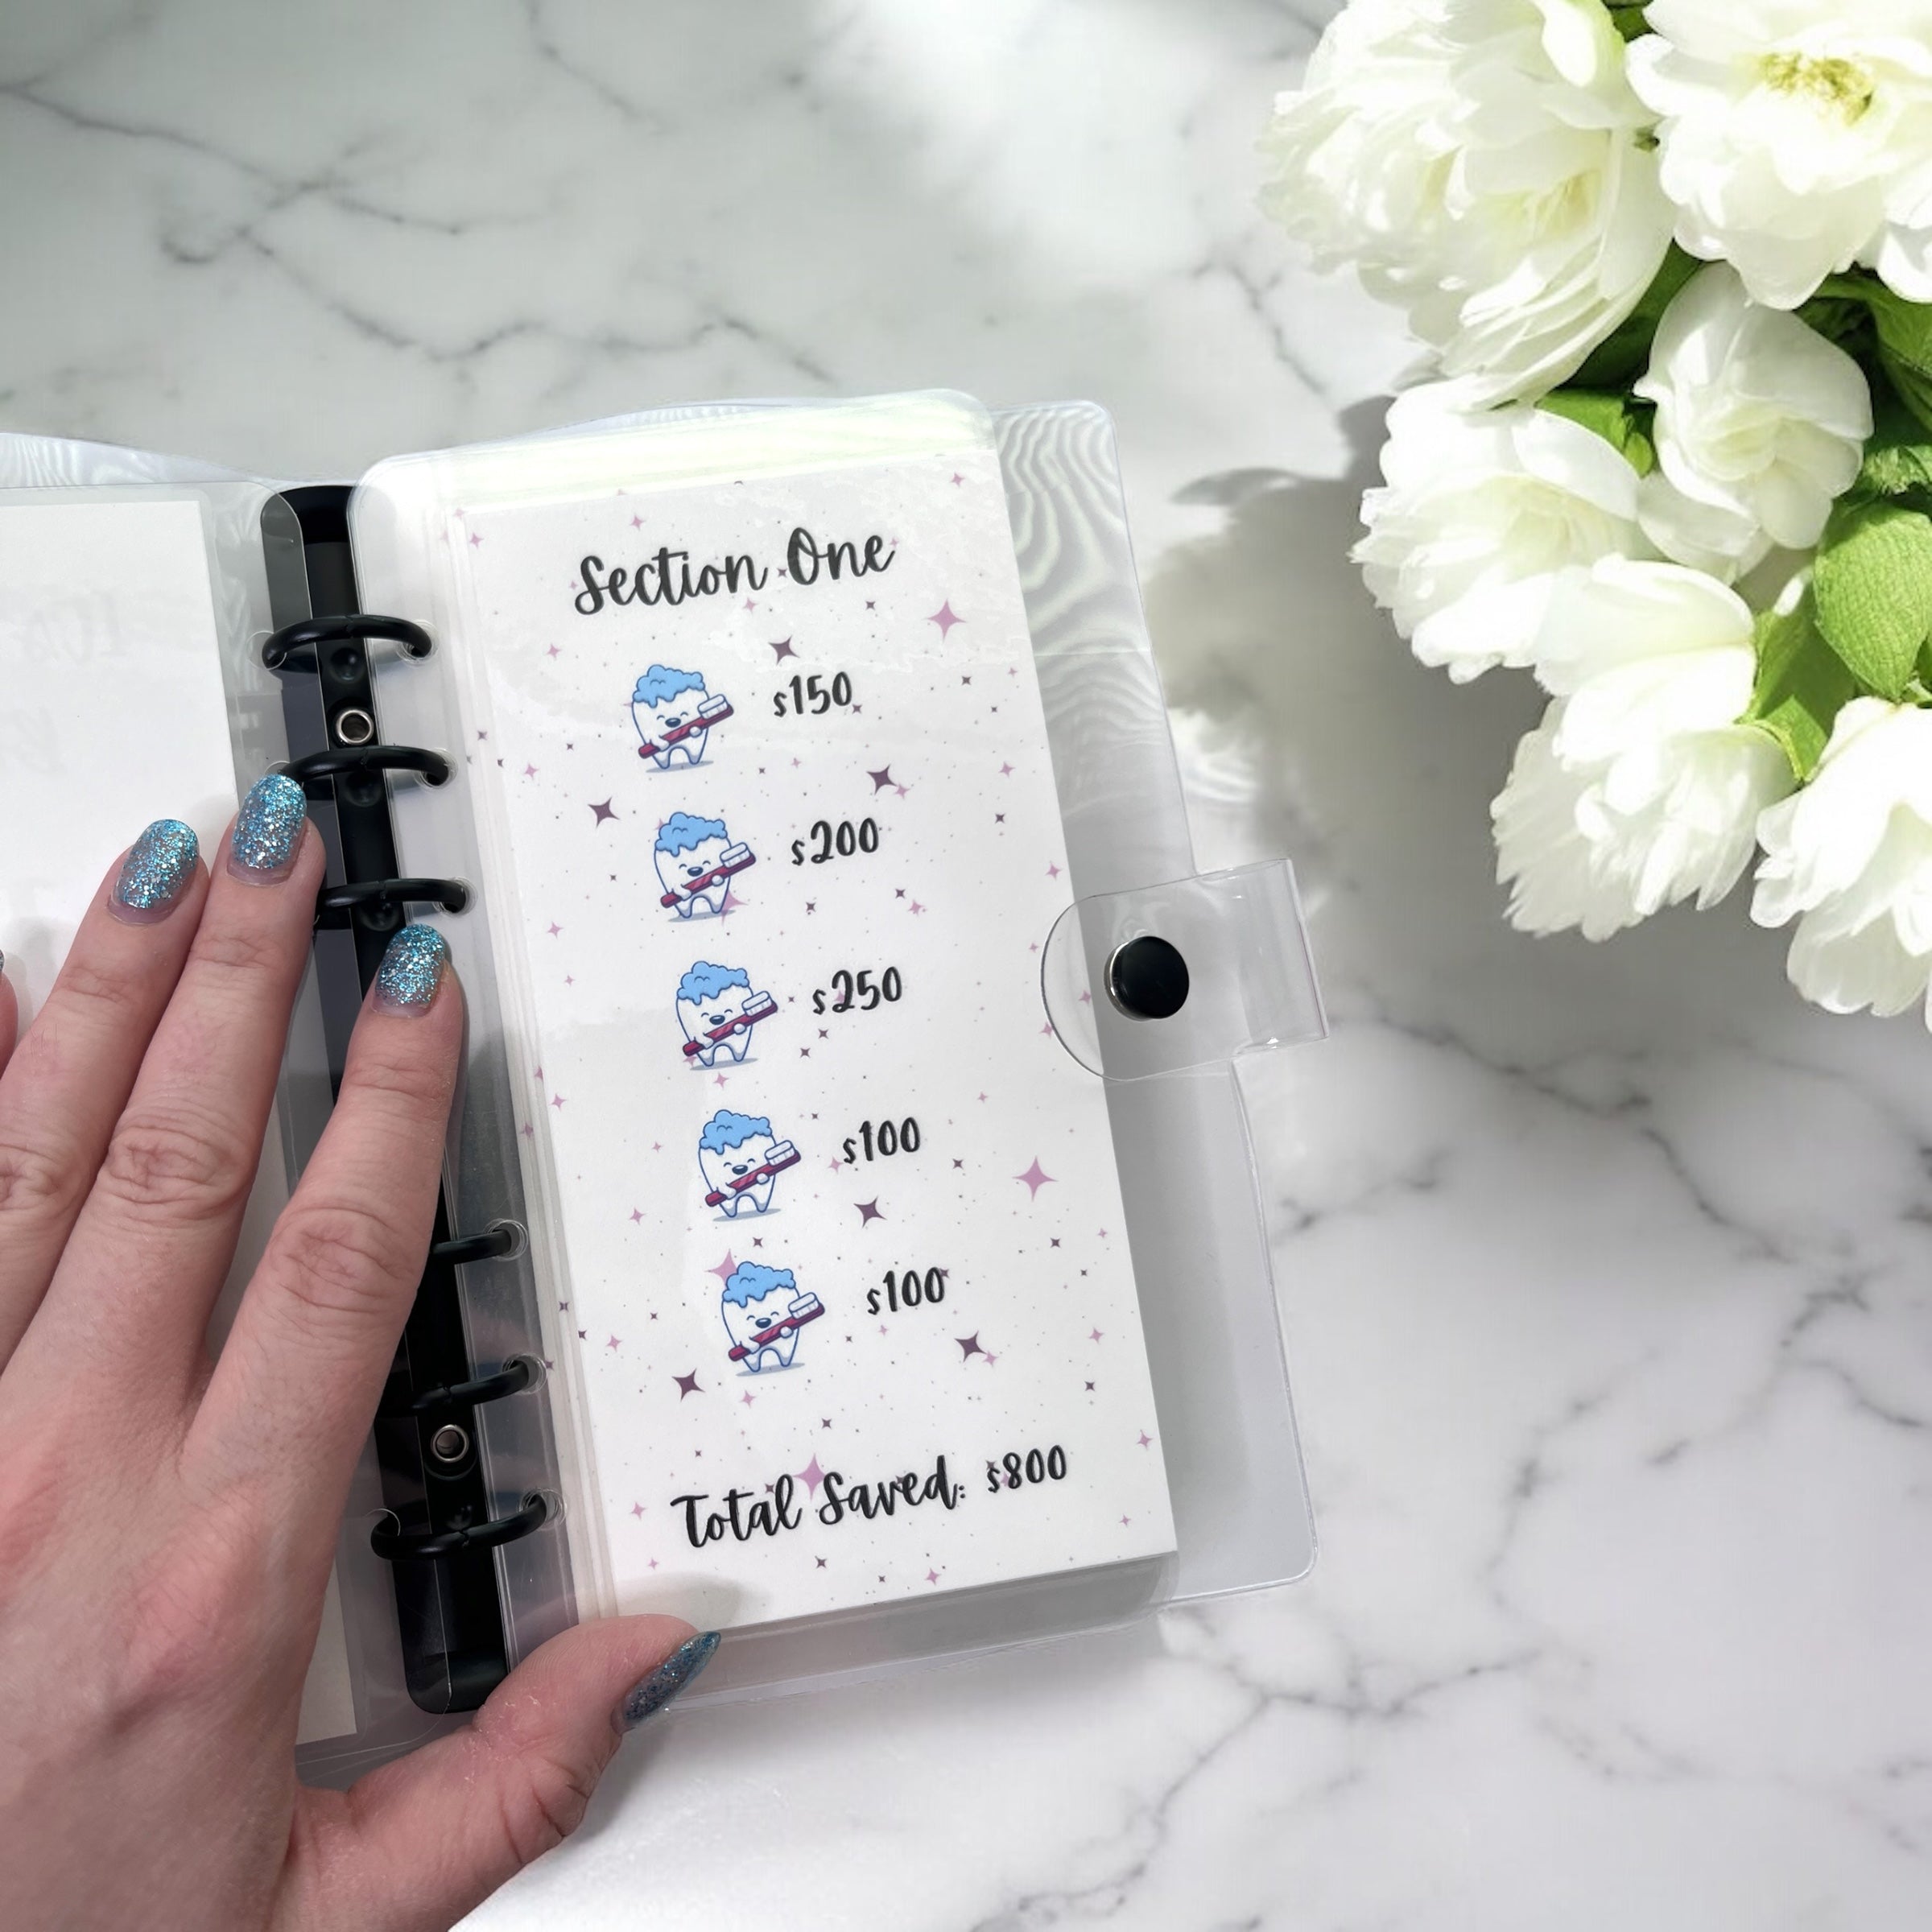 Section One
$150
$200
$250
$100
$100
Total Saved: $800